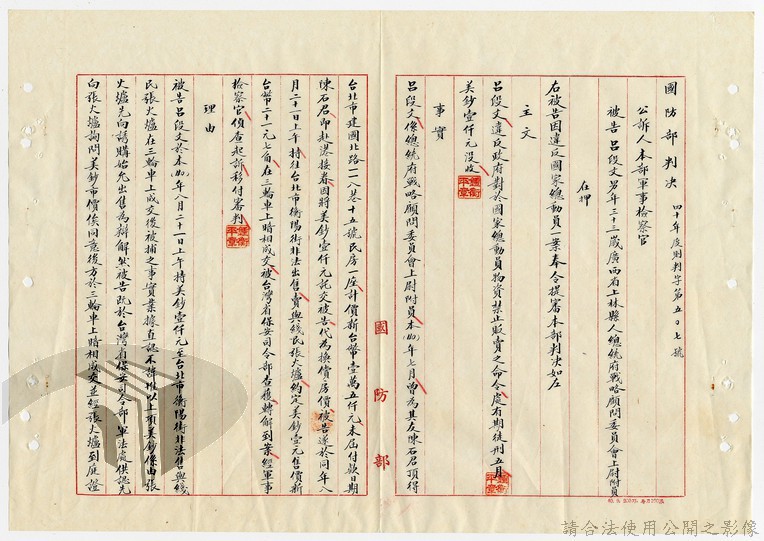 國防部判決
四十年度則判字第五〇七號
公訴人本部軍事檢察官
被告 呂段文 男 年三十三歲 廣西省上林縣人 總統府戰略顧問委員會上尉附員
在押
右被告因違反國家總動員一案奉令提審本部判決如左
主文
呂段文違反政府對於國家總動員物資禁止販賣之命令處有期徒刑五月
美鈔壹仟元沒收
事實
呂段文係總統府戰略顧問委員會上尉附員本(40)年七月曾為其友陳石君頂得
台北市建國北路一一八巷十五號民房一座計價新台幣壹萬五仟元未屆付款日期
陳石君即赴港接眷因將美鈔壹仟元託交被告代為換償房價被告遂於同年八
月二十一日上午持往台北市衡陽街非法出售賣與綫民張火爐約定美鈔壹元售價新
台幣二十一元七角在三輪車上暗相成交被台灣省保安司令部查獲轉解到案經軍事
檢察官偵查起訴移付審判
理由
被告呂段文於本(40)年八月二十一日上午持美鈔壹仟元至台北市衡陽街非法售與綫
民張火爐在三輪車上成交後被捕之事實業據直認不諱惟以上項美鈔係由張
火爐先向誘購始允出售為辯解然被告既於台灣省保安司令部軍法處供認先
向張火爐詢問美鈔市價俟同意後方於三輪車上暗相成交並經張火爐到庭證
國防部
請合法使用公開之影像